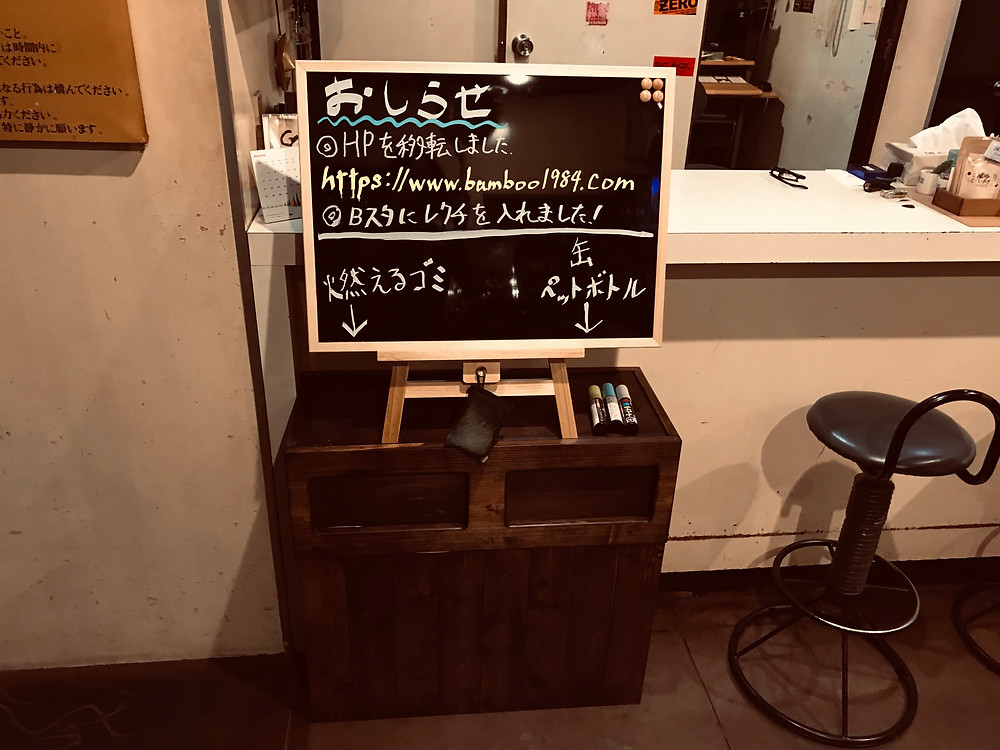 こと。
は時間内に
ください。
なる行為は慎んでください。
す。
力ください。
特に静かに願います。
ZERO
おしらせ
◎HPを移転しました。
https://www.bamboo1984.com
◎Bスタにレクチを入れました!
缶
燃えるゴミ
ペットボトル
↓
↓